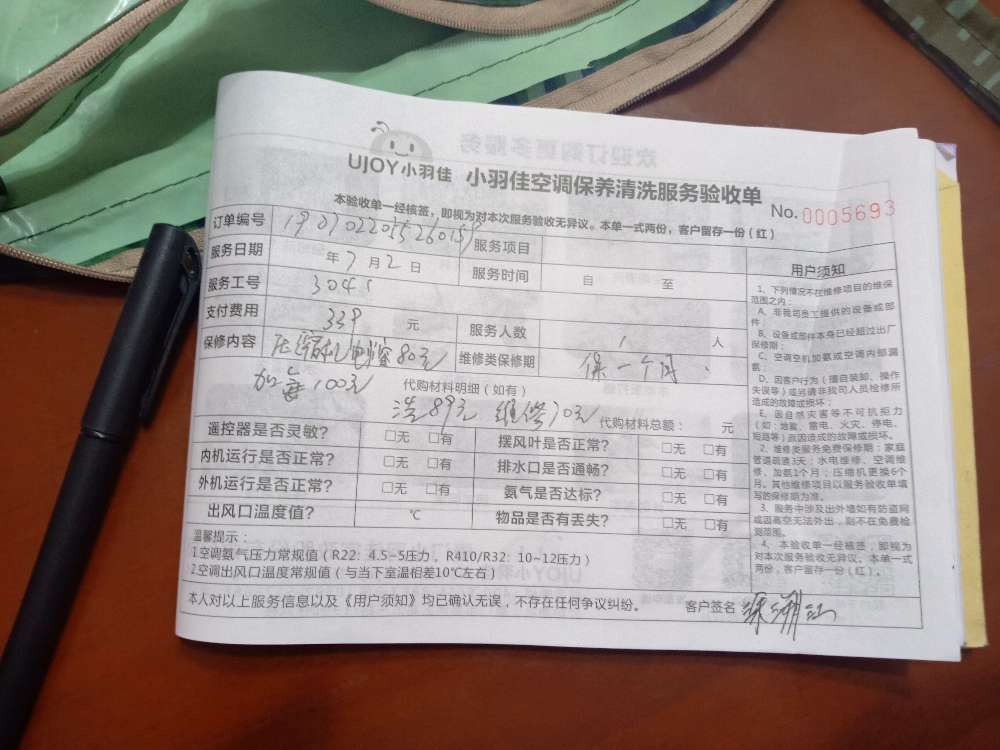 UJOY小羽佳 小羽佳空调保养清洗服务验收单
No. 0005693
本验收单一经核签，即视为对本次服务验收无异议。本单一式两份，客户留存一份（红）
订单编号 服务项目
服务日期 年7月2日 服务时间 自 至
服务工号 3045
支付费用 339 元 服务人数 1 人
保修内容 压缩机电容80元 维修类保修期 保一个月
加氟100元 代购材料明细（如有）
洗89元 维修70元 代购材料总额： 元
遥控器是否灵敏？ □无 □有 摆风叶是否正常？ □无 □有
内机运行是否正常？ □无 □有 排水口是否通畅？ □无 □有
外机运行是否正常？ □无 □有 氨气是否达标？ □无 □有
出风口温度值？ ℃ 物品是否有丢失？ □无 □有
温馨提示：
1.空调氨气压力常规值（R22：4.5~5压力、R410/R32：10~12压力）
2.空调出风口温度常规值（与当下室温相差10℃左右）
本人对以上服务信息以及《用户须知》均已确认无误，不存在任何争议纠纷。 客户签名
用户须知
1、下列情况不在维修项目的维保
范围之内：
A、非我司员工提供的设备或部
件；
B、设备或部件本身已经超过出厂
保修期；
C、空调空机加氨或空调内部漏
氨；
D、因客户行为（擅自装卸、操作
失误等）或另请非我司人员检修所
造成的故障或损坏；
E、因自然灾害等不可抗拒力
（如：地震、雷电、火灾、停电、
短路等）原因造成的故障或损坏。
2、维修类服务免费保修期：家庭
管道疏通3天；水电维修、空调维
修、加氨1个月；压缩机更换6个
月。其他维修项目以服务验收单填
写的保修期为准。
3、服务中涉及出外墙如有防盗网
或因高空无法外出，则不在免费检
测范围。
4、本验收单一经核签，即视为
对本次服务验收无异议。本单一式
两份，客户留存一份（红）。